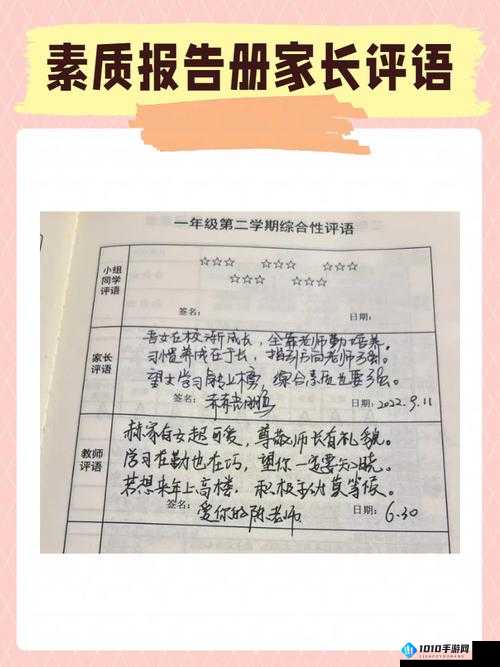 素质报告册家长评语
一年级第二学期综合性评语
小组
同学
评语
☆☆☆ ☆☆☆ ☆☆☆
☆☆☆ ☆☆☆
签名： 日期：
家长
评语
吾女在校渐成长，全靠老师勤培养。
习惯养成在于长，指引方向老师强。
望女学习上榜，综合素质也要强。
签名： 日期：2022.9.11
教师
评语
赫家白女超可爱，尊敬师长有礼貌。
学习在勤也在巧，望你一定要知晓。
若想来年上高楼，积极努力莫等候。
签名：爱你的陈老师 日期：6.30
1010手游网